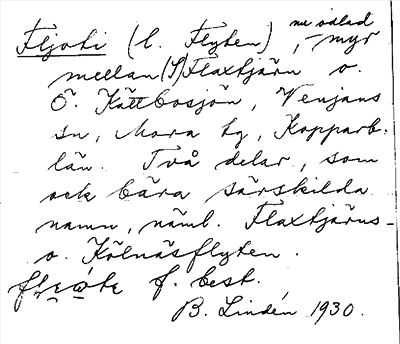 Fljoti (l. Flyten), nu odlad -myr
mellan (S) Flaxtjärn o.
Ö. Kättbosjön, Venjans
sn, Mora tg, Kopparb.
län. Två delar, som
ock bära särskilda
namn, näml. Flaxtjärns-
o. Kölnäsflyten.
f. best.
B. Lindén 1930.